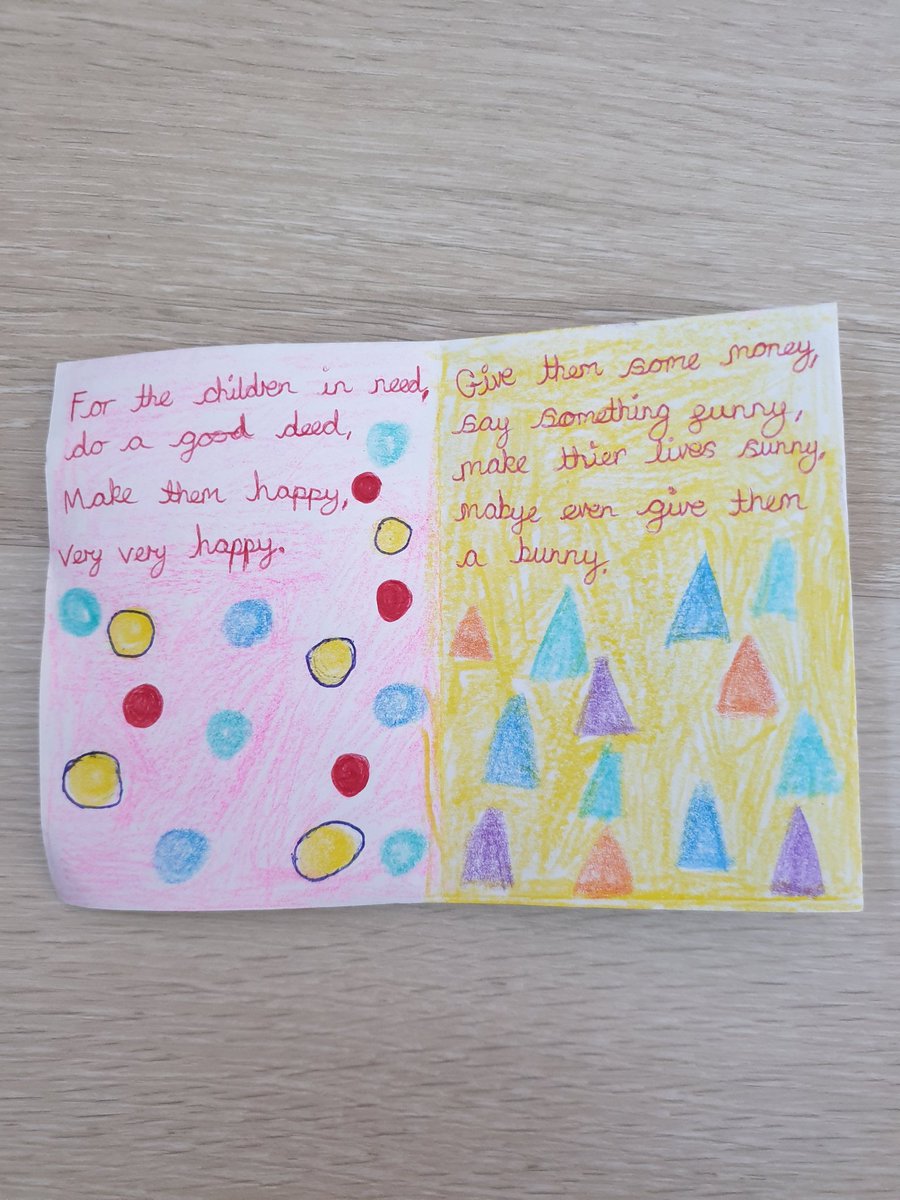 For the children in need,
do a good deed,
Make them happy,
very very happy.
Give them some money,
say something funny,
make thier lives sunny,
mabye even give them
a bunny.